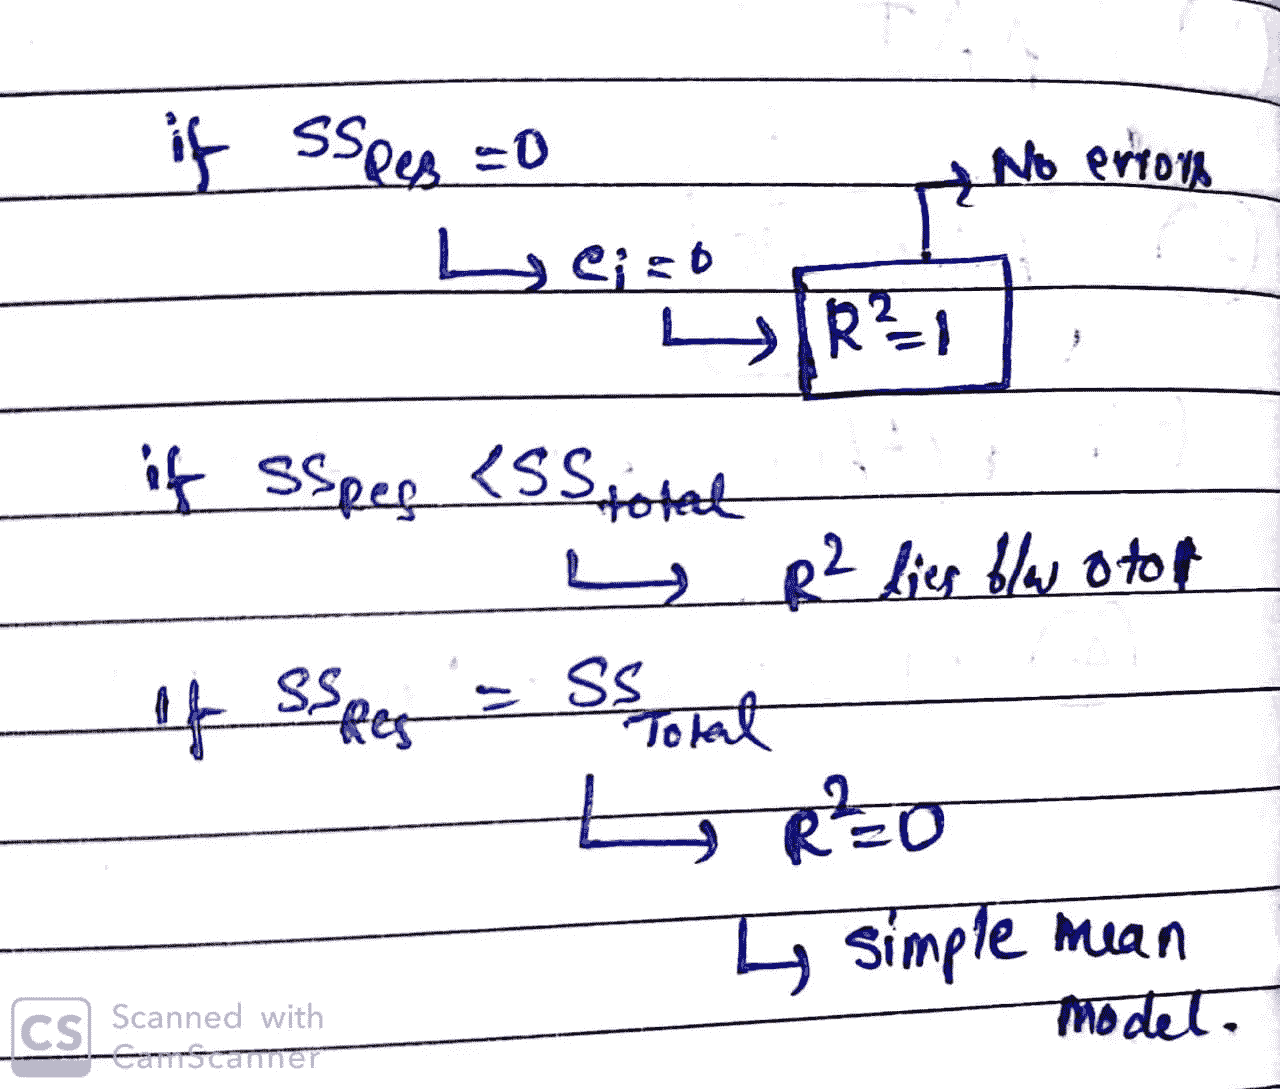 if SSRes = 0
→ No errors
↳ ei = 0
↳ R²=1
if SSRes < SStotal
↳ R² lies b/w 0 to 1
If SSRes = SSTotal
↳ R²=0
↳ simple mean
model.
CS Scanned with
CamScanner